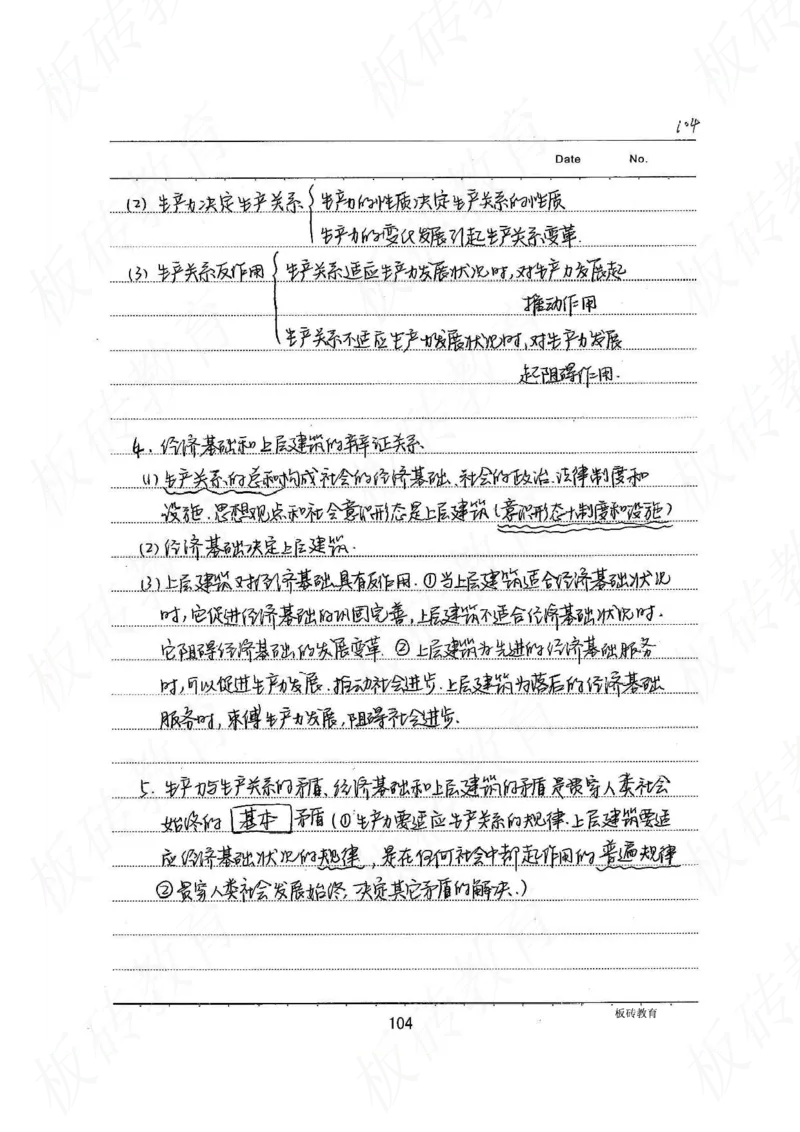 104
Date No.
(2) 生产力决定生产关系 { 生产力的性质决定生产关系的性质
生产力的变化发展引起生产关系变革.
(3) 生产关系反作用 { 生产关系适应生产力发展状况时,对生产力发展起
推动作用
生产关系不适应生产力发展状况时,对生产力发展
起阻碍作用.
4. 经济基础和上层建筑的辩证关系
(1) 生产关系的总和构成社会的经济基础、社会的政治、法律制度和
设施.思想观点和社会意识形态是上层建筑(意识形态+制度和设施)
(2) 经济基础决定上层建筑.
(3) 上层建筑对经济基础具有反作用.①当上层建筑适合经济基础状况
时,它促进经济基础的巩固完善,上层建筑不适合经济基础状况时.
它阻碍经济基础的发展变革.②上层建筑为先进的经济基础服务
时,可以促进生产力发展.推动社会进步.上层建筑为落后的经济基础
服务时,束缚生产力发展,阻碍社会进步.
5. 生产力与生产关系的矛盾、经济基础和上层建筑的矛盾是贯穿人类社会
始终的 基本 矛盾(①生产力要适应生产关系的规律.上层建筑要适
应经济基础状况的规律,是在任何社会中都起作用的普遍规律
②贯穿人类社会发展始终,决定其它矛盾的解决.)
板砖教育
104